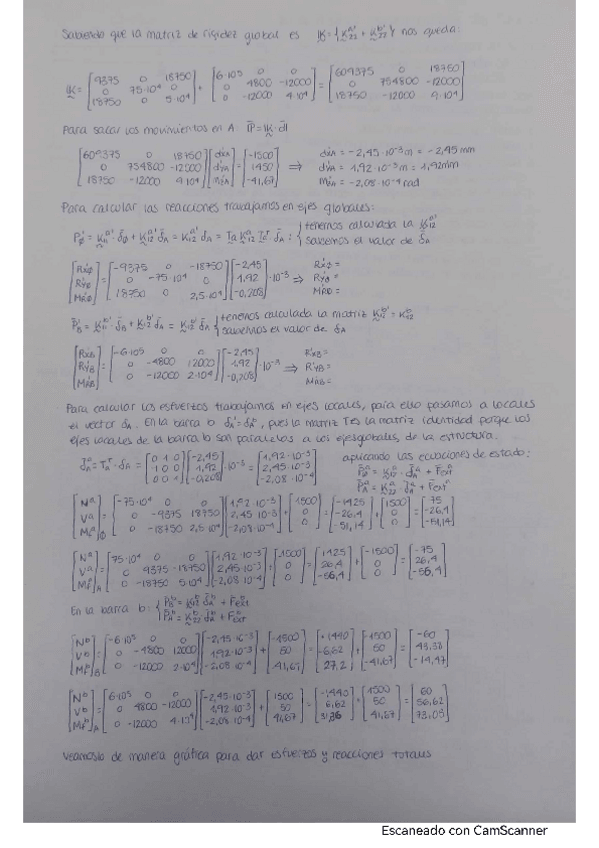 Sabiendo que la matriz de rigidez global es IK = {K22^a' + K22^b'} nos queda:
IK = [9375 0 18750; 0 75·10⁴ 0; 18750 0 5·10⁴] + [6·10⁵ 0 0; 0 4800 -12000; 0 -12000 4·10⁴] = [609375 0 18750; 0 754800 -12000; 18750 -12000 9·10⁴]
Para sacar los movimientos en A IP = IK · dI
[609375 0 18750; 0 754800 -12000; 18750 -12000 9·10⁴] [dxA; dyA; MzA] = [-1500; 1450; -41,67] ⇒ dxA = -2,45·10⁻³ m = -2,45 mm
dyA = 1,92·10⁻³ m = 1,92 mm
MzA = -2,08·10⁻⁴ rad
Para calcular las reacciones trabajamos en ejes globales:
tenemos calculada la
sabemos el valor de δA
[-9375 0 -18750; 0 -75·10⁴ 0; 18750 0 2,5·10⁴] [-2,45; 1,92; -0,208] ·10⁻³ ⇒
tenemos calculada la matriz K12^b' = K12^b
sabemos el valor de δA
[RxB; RyB; MAB] = [-6·10⁵ 0 0; 0 -4800 12000; 0 -12000 2·10⁴] [-2,45; 1,92; -0,208] ·10⁻³ ⇒ RxB =
RyB =
MAB =
Para calcular los esfuerzos trabajamos en ejes locales, para ello pasamos a locales
el vector δA. En la barra b δA' = δA, pues la matriz T es la matriz identidad porque los
ejes locales de la barra b son paralelas a los ejes globales, de la estructura.
[0 1 0; 1 0 0; 0 0 1] [-2,45; 1,92; -0,208] ·10⁻³ = [1,92·10⁻³; 2,45·10⁻³; -2,08·10⁻⁴] aplicando las ecuaciones de estado:
[-75·10⁴ 0 0; 0 -9375 18750; 0 -18750 2,5·10⁴] [1,92·10⁻³; 2,45·10⁻³; -2,08·10⁻⁴] + [1500; 0; 0] = [-1425; -26,4; -51,14] + [1500; 0; 0] = [75; -26,4; -51,14]
[75·10⁴ 0 0; 0 9375 -18750; 0 -18750 5·10⁴] [1,92·10⁻³; 2,45·10⁻³; -2,08·10⁻⁴] + [-1500; 0; 0] = [1425; 26,4; -56,4] + [-1500; 0; 0] = [-75; 26,4; -56,4]
En la barra b:
[-6·10⁵ 0 0; 0 -4800 12000; 0 -12000 2·10⁴] [-2,45·10⁻³; 1,92·10⁻³; -2,08·10⁻⁴] + [-1500; 50; -41,67] = [+1440; -6,62; 27,2] + [-1500; 50; -41,67] = [-60; 43,38; -14,47]
[6·10⁵ 0 0; 0 4800 -12000; 0 -12000 4·10⁴] [-2,45·10⁻³; 1,92·10⁻³; -2,08·10⁻⁴] + [1500; 50; 41,67] = [-1440; 6,62; 31,36] + [1500; 50; 41,67] = [60; 56,62; 73,05]
Veamoslo de manera gráfica para dar esfuerzos y reacciones totales
Escaneado con CamScanner